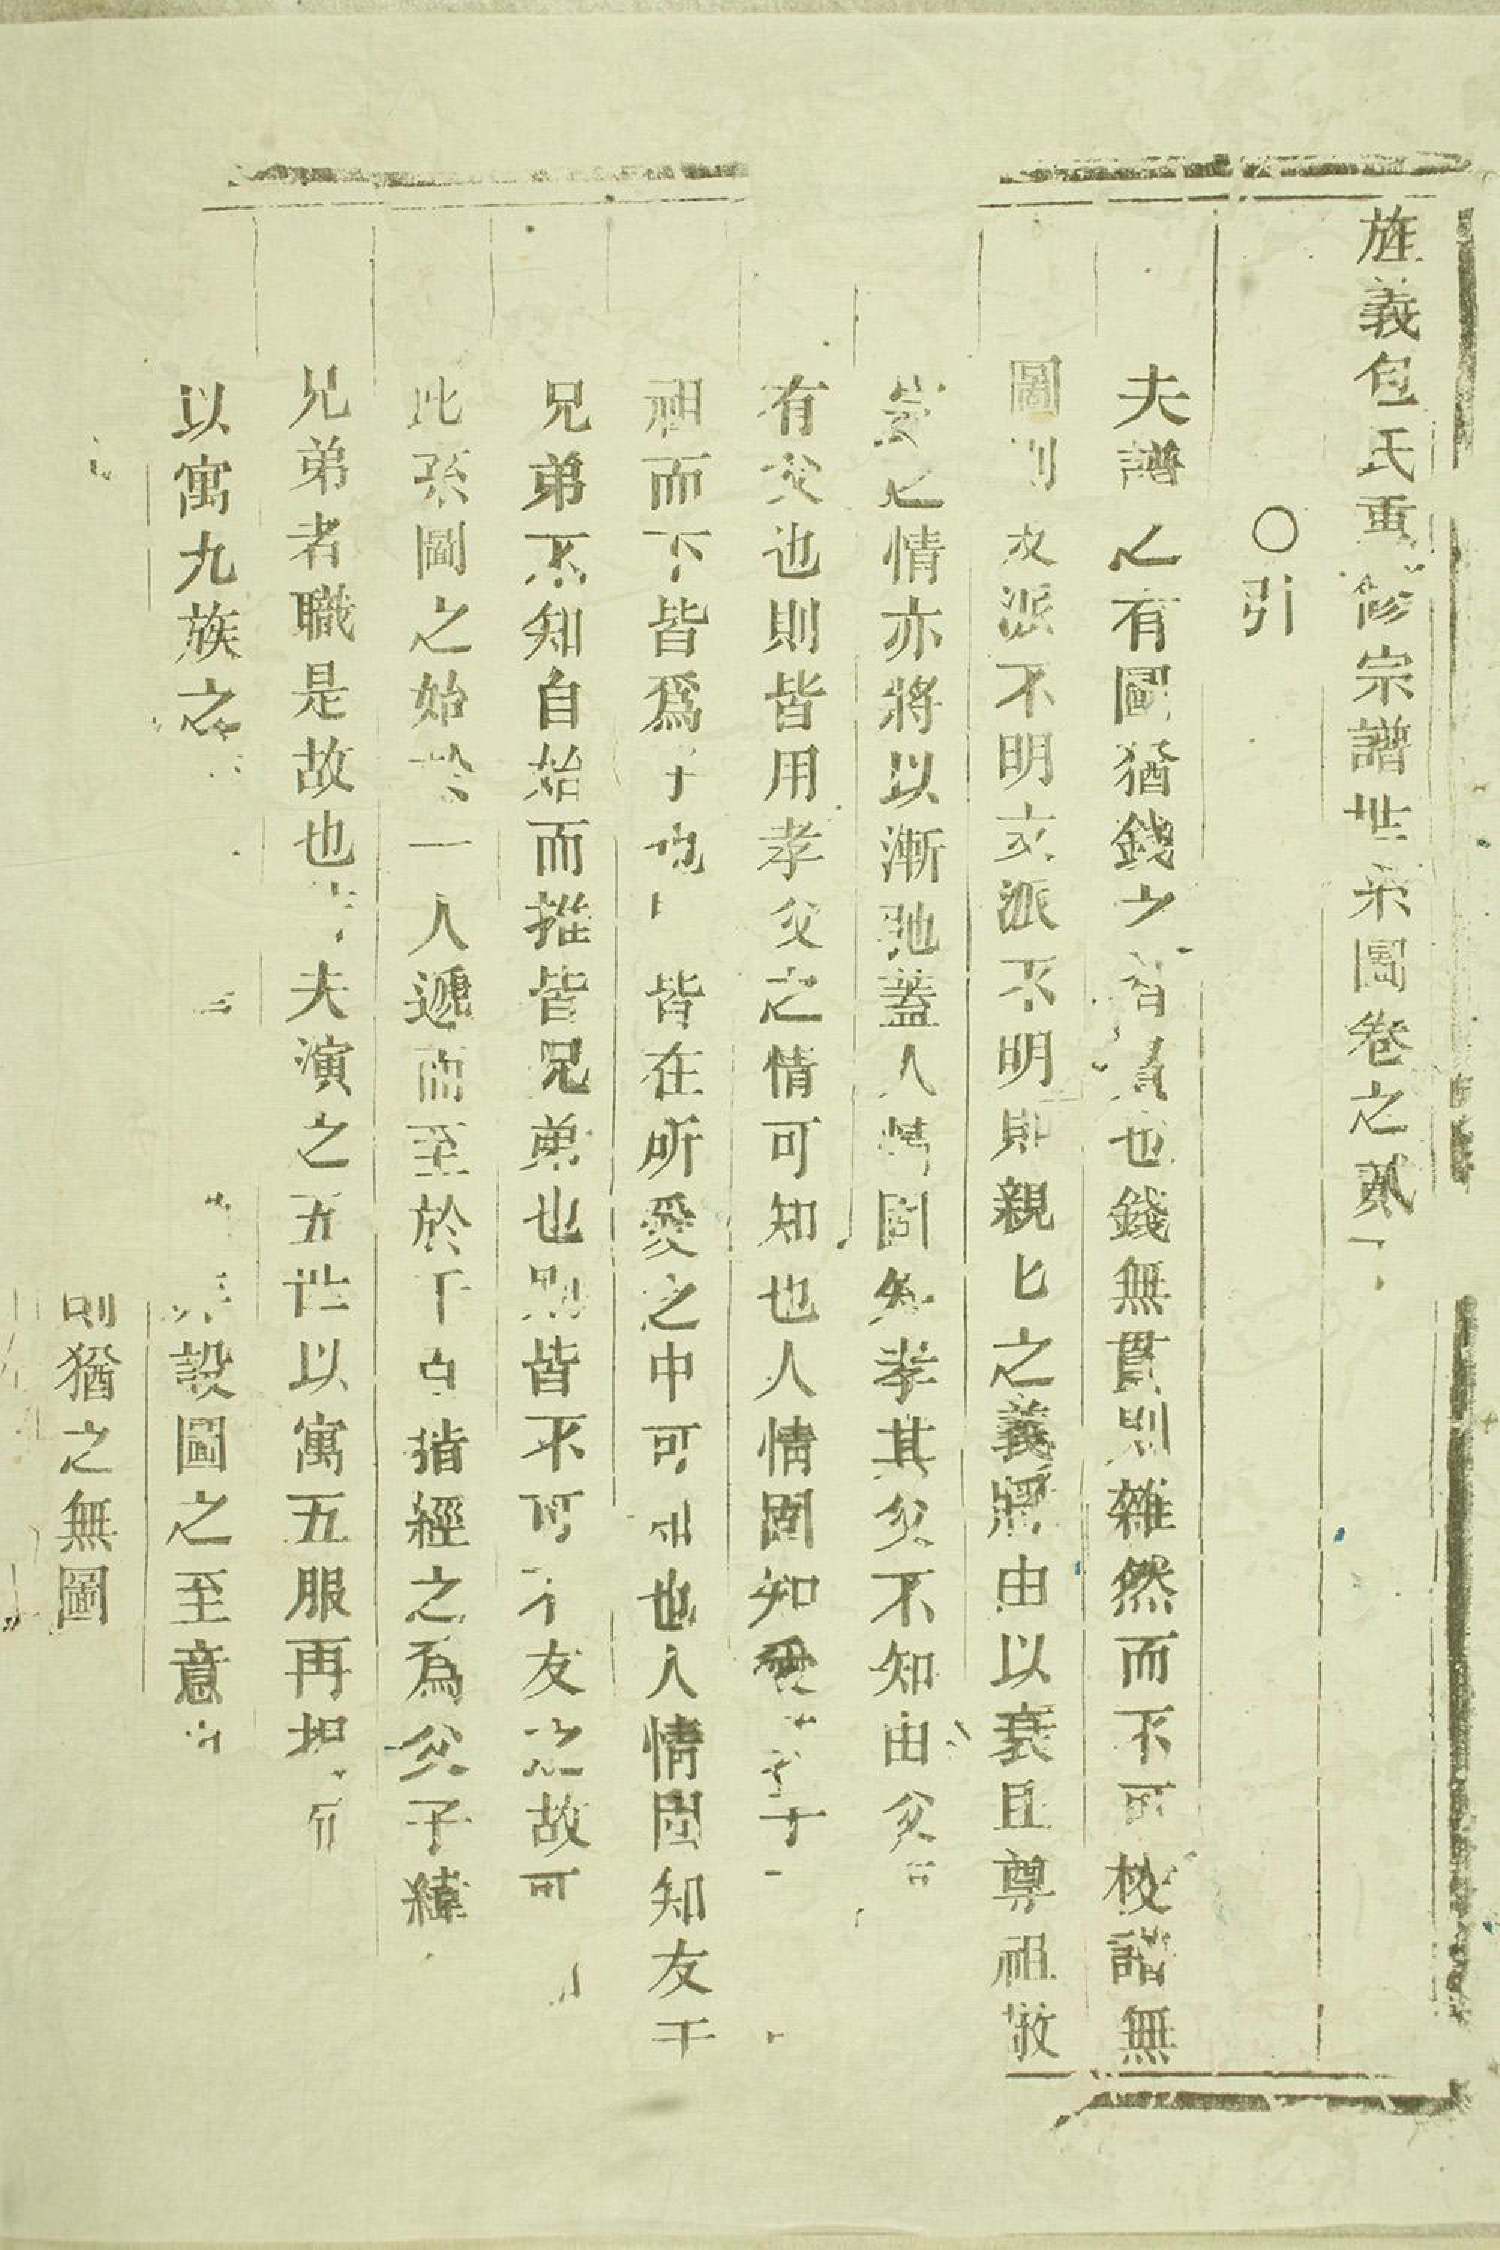 旌義包氏重修宗譜世系圖卷之貳
○引
夫譜之有圖猶錢之有貫也錢無貫則雜然而不可校譜無
圖則支派不明支派不明則親匕之義將由以衰且尊祖敬
宗之情亦將以漸弛蓋人情固知孝其父不知由父
有父也則皆用孝父之情可知也人情固知愛其子子
祖而下皆爲子也皆在所愛之中可知也人情固知友于
兄弟不知自始而推皆兄弟也則皆不可不友之故可
此系圖之始於一人遞而至於千百指經之爲父子緯
兄弟者職是故也夫演之五世以寓五服再
以寓九族之設圖之至意
則猶之無圖